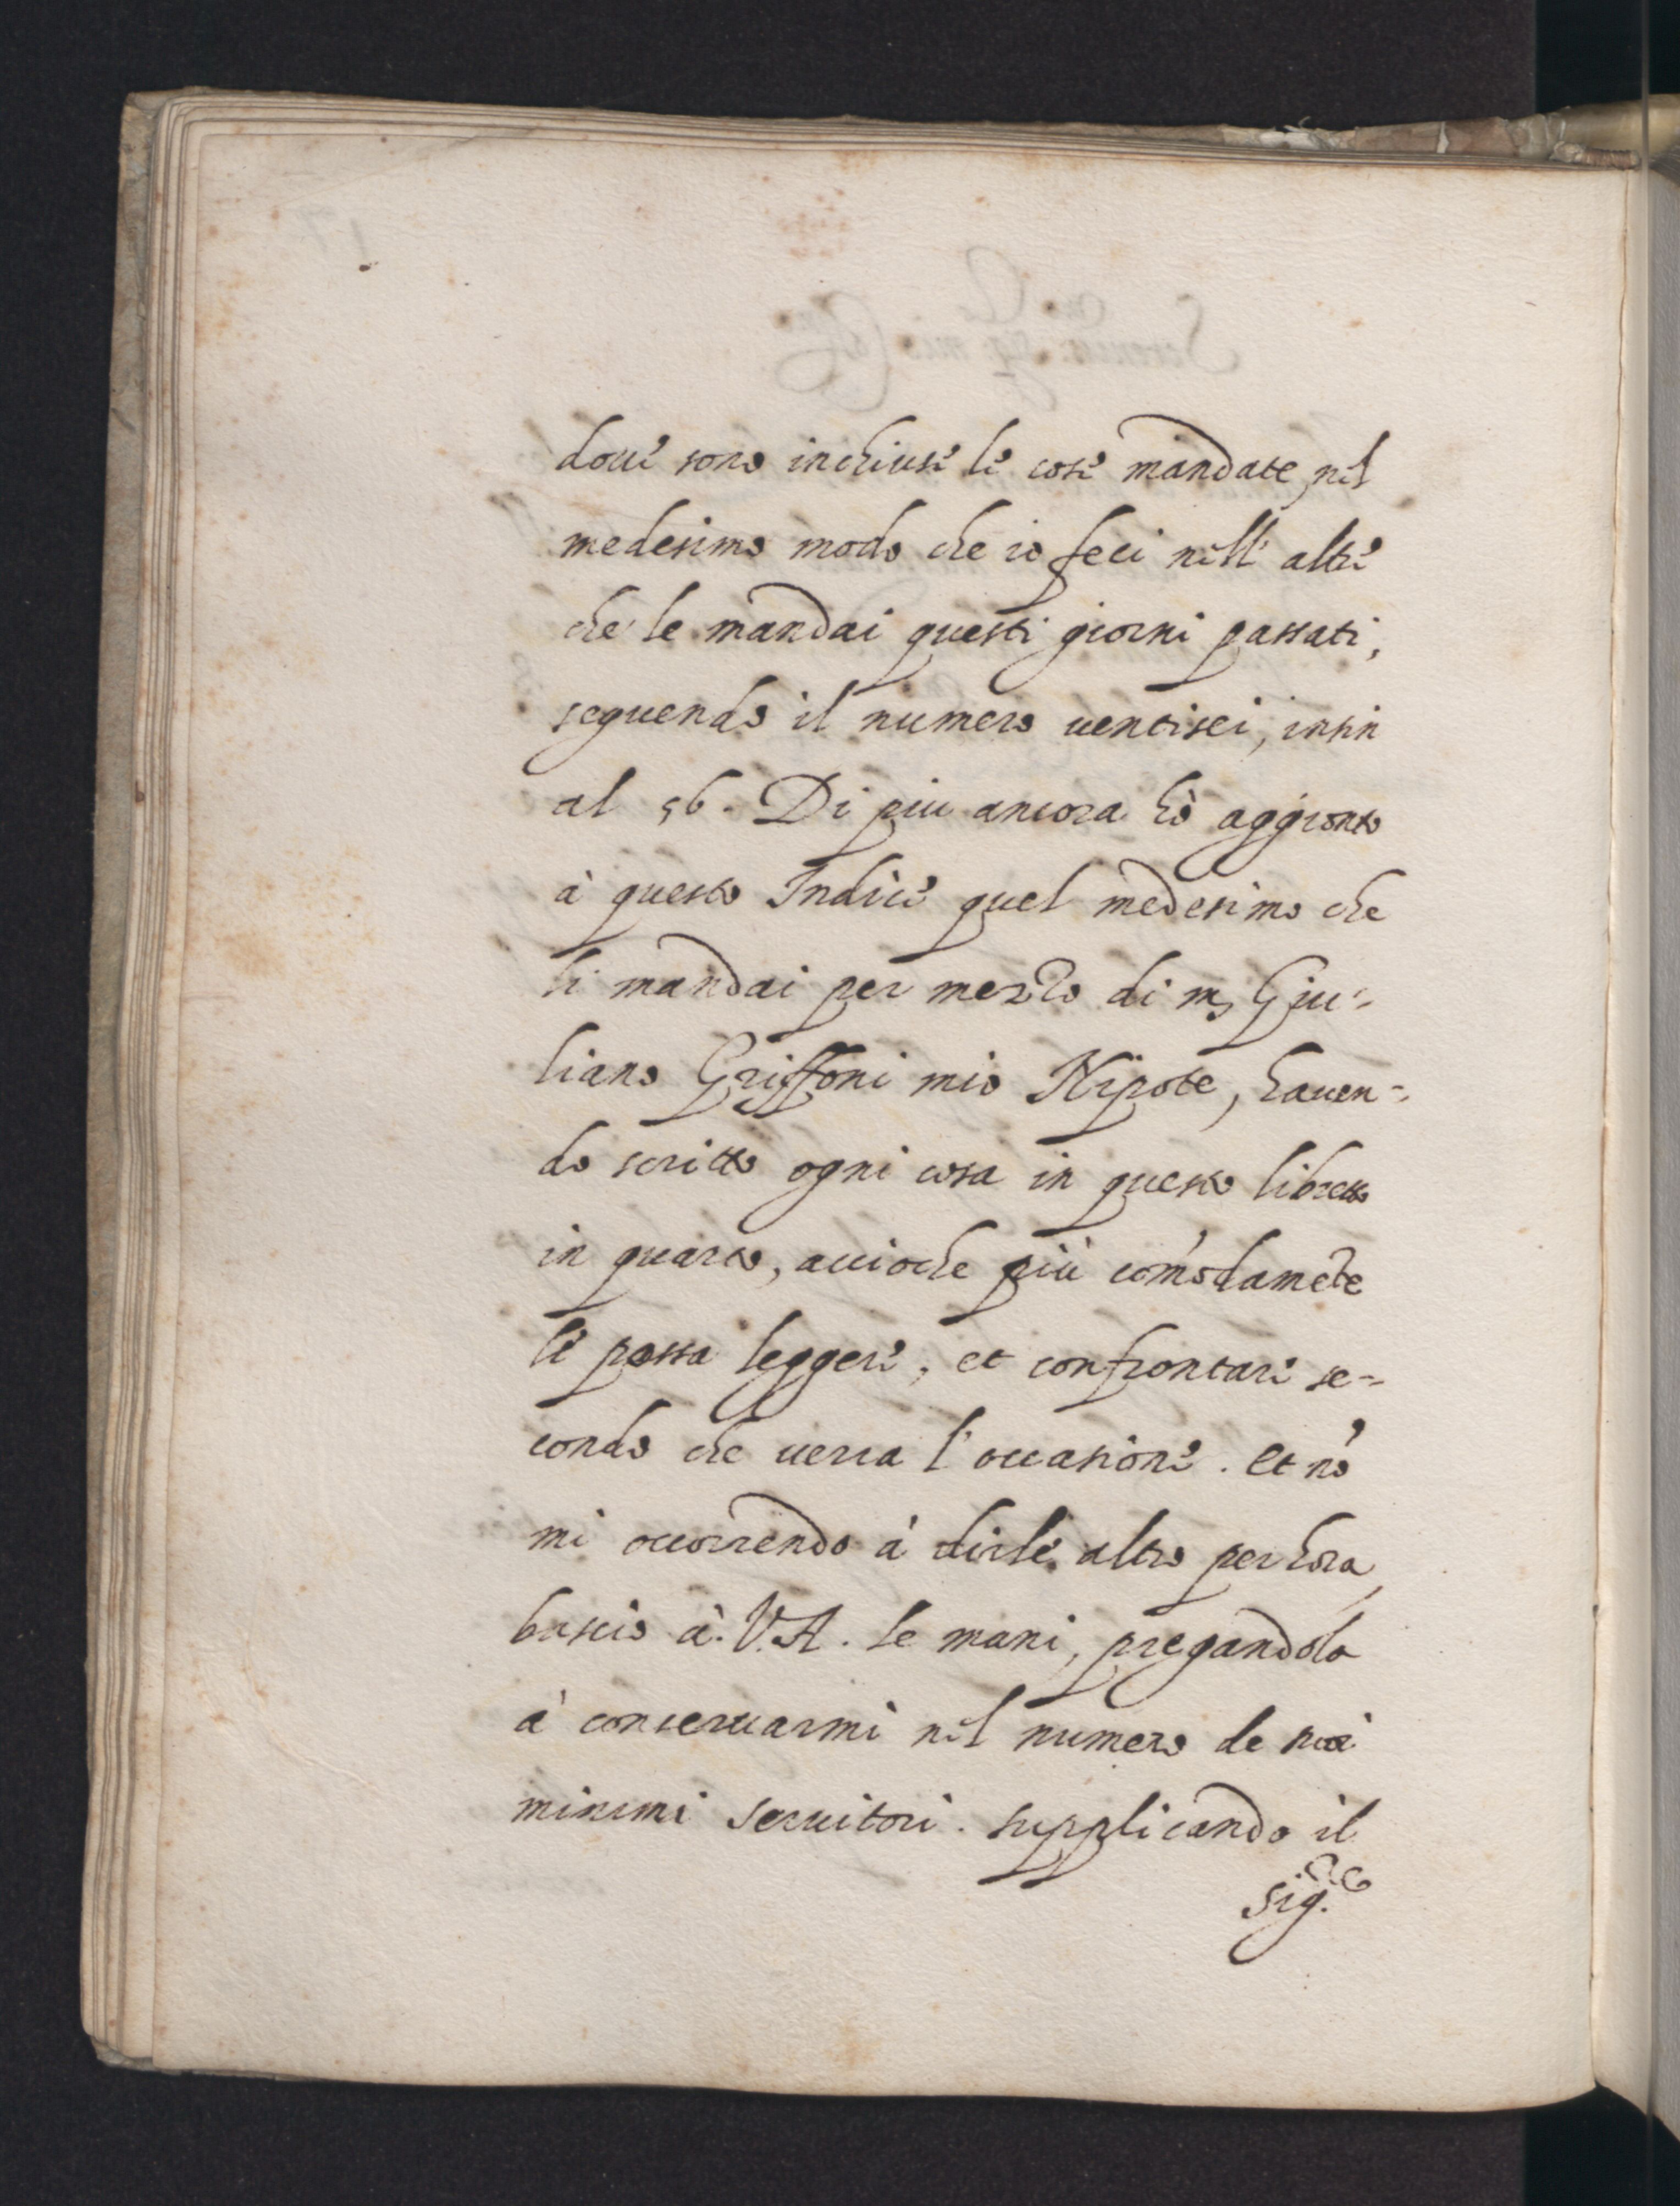 doue sono inchiuse le cose mandate nel
medesimo modo che io feci nell' altre
che le mandai questi giorni passati,
seguendo il numero uentisei, insin
al 56. Di piu ancora hò aggionto
à questo Indice quel medesimo che
li mandai per mezzo di m. Giu-
liano Griffoni mio Nipote, hauen-
do scritto ogni cosa in questo libretto
in quarto, accioche più com̃odamẽte
le possa leggere, et confrontare se-
condo che uerra l'occasione. et nõ
mi occorrendo à dirle altro per hora,
bascio à V.A. le mani, pregandola
à conseruarmi nel numero de suoi
minimi seruitori. supplicando il
Sig.re